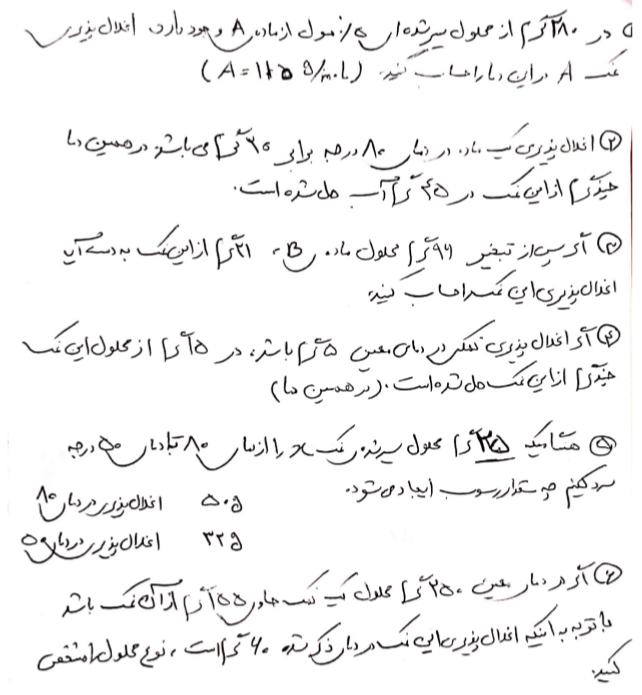 در ۲۸۰ گرم از محلول سیرشده‌ای ۰/۵ مول از ماده‌ی A وجود دارد. انحلال پذیری
نمک A در این دما را حساب کنید. (A = 115 g/mol)
② انحلال پذیری یک ماده در دمای ۸۰ درجه برابر ۳۰ گرم می باشد در همین دما
چند گرم از این نمک در ۴۵ گرم آب حل شده است.
③ اگر پس از تبخیر ۹۶ گرم محلول ماده B، ۲۱ گرم از این نمک به دست آید
انحلال پذیری این نمک را حساب کنید
④ اگر انحلال پذیری نمکی در دمای معین ۵ گرم باشد، در ۱۵ گرم از محلول این نمک
چند گرم از این نمک حل شده است. (در همین دما)
⑤ هنگامیکه ۳۷۵ گرم محلول سیرشده نمک x را از دمای ۸۰ تا دمای ۵۰ درجه
سرد کنیم چه مقدار رسوب ایجاد می شود.
۵۰g انحلال پذیری در دمای ۸۰
۳۲g انحلال پذیری در دمای ۵۰
⑥ اگر در دمای معین ۲۵۰ گرم محلول یک نمک حاوی ۵۵ گرم از آن نمک باشد
با توجه به اینکه انحلال پذیری این نمک در دمای ذکر شده ۶۰ گرم است، نوع محلول را مشخص
کنید.